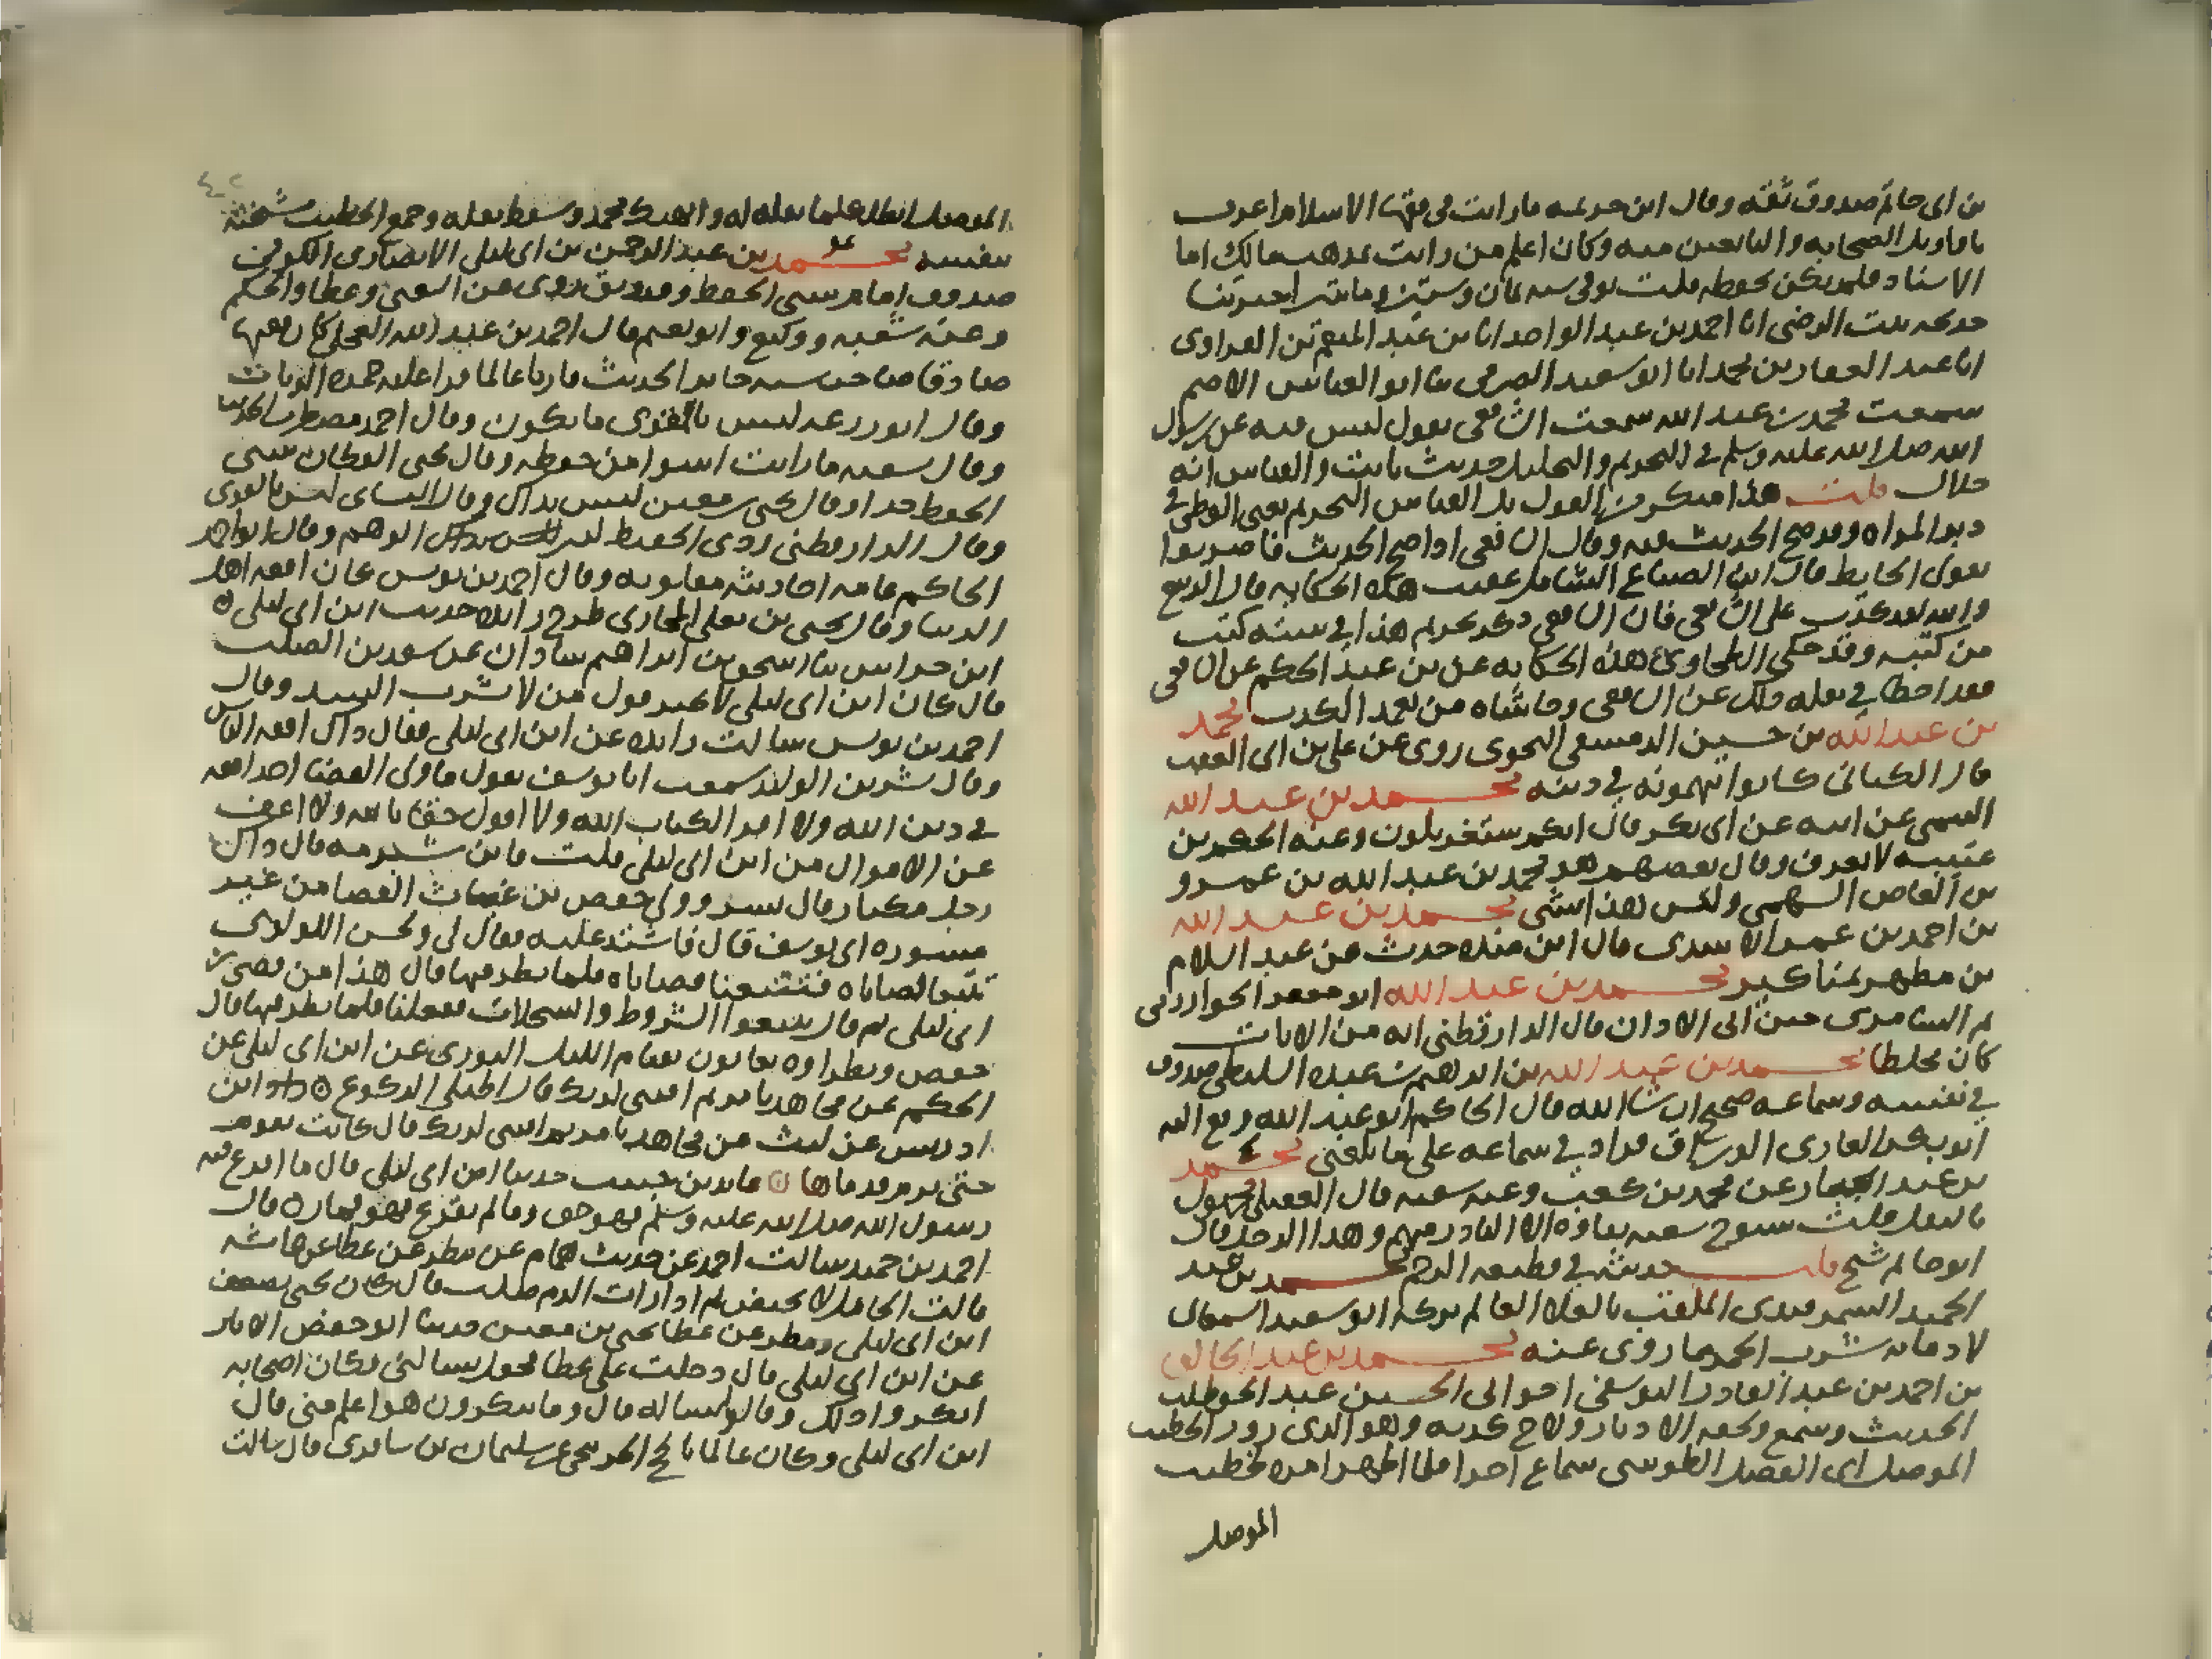 بن ابى حاتم صدوق ثقه وقال ابن خزيمه ما رايت فى فقها الاسلام اعرف
باقاويل الصحابه والتابعين منه وكان اعلم من رايت بمذهب مالك اما
الاسناد فلم يكن يحفظه قلت توفى سنه ثمان وستين ومايتين اخبرتنا
خديجه بنت الرضى انا احمد بن عبد الواحد انا بن عبد المنعم بن الفراوى
انا عبد الغفار بن محمد انا ابو سعيد الصيرفى ثنا ابو العباس الاصم
سمعت محمد بن عبد الله سمعت الشافعى يقول ليس فيه عن رسول
الله صلى الله عليه وسلم فى التحريم والتحليل حديث ثابت والقياس انه
حلال قلت هذا منكر من القول بل القياس التحريم يعنى الوطى فى
دبر المراه وقد صح الحديث فيه وقال الشافعى اذا صح الحديث فاضربوا
بقولى الحايط قال ابن الصباغ الشامل عقيب هذه الحكايه قال الربيع
والله لقد كذب على الشافعى فان الشافعى ذكر تحريم هذا فى سته كتب
من كتبه وقد حكى الطحاوى هذه الحكايه عن بن عبد الحكم عن الشافعى
فقد اخطا فى نقله ذلك عن الشافعى وحاشاه من تعمد الكذب محمد
بن عبد الله بن حسين الدمشقى النحوى روى عن على بن ابى العقب
قال الكتانى كانوا يتهمونه فى دينه محمد بن عبد الله
التيمى عن ابيه عن ابى بكر قال انكم ستغربلون وعنه الحكم بن
عتيبه لا يعرف وقال بعضهم هو محمد بن عبد الله بن عمرو
بن العاص السهمى وليس هذا بشى محمد بن عبد الله
بن احمد بن عمر الاسدى قال ابن منده حدث عن عبد السلام
بن مطهر بمناكير محمد بن عبد الله ابو جعفر الخوارزمى
ثم السامرى حنن الى الاذان قال الدارقطنى انه من الاثبات
كان مخلطا محمد بن عبد الله بن ابراهيم بن عبده السليطى صدوق
فى نفسه وسماعه صحيح ان شا الله قال الحاكم ابو عبد الله وقع الى
ابو بكر القارى الوراق فزاد فى سماعه على ما بلغنى محمد
بن عبد الجبار عن محمد بن كعب وعنه شعبه قال العقيلى مجهول
بالنقل قلت شيوخ شعبه نقاوه الا النادر منهم وهذا الرجل قال
ابو حاتم شيخ قلت حديثه فى قطيعه الرحم محمد بن عبد
الحميد السمرقندى الملقب بالعلا العالم تركه ابو سعد السمعانى
لادمانه شرب الخمر فما روى عنه محمد بن عبد الخالق
بن احمد بن عبد القادر اليوسفى اخو ابى الحسين عبد الحق طلب
الحديث وسمع ولحقه الادبار ولاح كذبه وهو الذى زور لخطيب
الموصل ابى الفضل الطوسى سماع اجزا فلما ظهر امره لخطيب
الموصل
الموصل ابطل كلما نقله له وانهتك محمد وسقط نقله وجمع الخطيب مشيخته
بنفسه محمد بن عبد الرحمن بن ابى ليلى الانصارى الكوفى
عو
صدوق امام سيى الحفظ وقد وثق روى عن الشعبى وعطا والحكم
وعنه شعبه ووكيع وابو نعيم قال احمد بن عبد الله العجلى كان فقيها
صادقا صاحب سنه جايز الحديث قاريا عالما قرا عليه حمزه الزيات
وقال ابو زرعه ليس باقوى ما يكون وقال احمد مضطرب الحديث
وقال شعبه ما رايت اسوا من حفظه وقال يحى القطان سيى
الحفظ جدا وقال يحى بن معين ليس بذاك وقال النساى ليس بالقوى
وقال الدارقطنى ردى الحفظ كثير الوهم وقال ابو احمد
الحاكم عامه احاديثه مقلوبه وقال احمد بن يونس كان افقه اهل
الدنيا وقال يحيى بن يعلى المحاربى طرح زايده حديث ابن ابى ليلى ه
ابن خراش ثنا اسحق بن ابراهيم شاذان عن سعد بن الصلت
قال كان ابن ابى ليلى لا يجيز قول من لا يشرب النبيذ وقال
احمد بن يونس سالت زايده عن ابن ابى ليلى فقال ذاك افقه الناس
وقال بشر بن الوليد سمعت ابا يوسف يقول ما ولى القضا احد افقه
فى دين الله ولا اقرا لكتاب الله ولا اقول حقا بالله ولا اعف
عن الاموال من ابن ابى ليلى قلت فابن شبرمه قال ذاك
رجل مكثار قال بشر وولى حفص بن غياث القضا من غير
مشوره ابى يوسف قال فاشتد عليه فقال لى ولحسن اللولوى
تتبعا قضاياه فتتبعنا قضاياه فلما نظر فيها قال هذا من قضى بن
ابى ليلى ثم قال تتبعوا الشروط والسجلات ففعلنا فلما نظر فيها قال
حفص ونظراوه يعانون بقيام الليل الثورى عن ابن ابى ليلى عن
الحكم عن مجاهد يا مريم اقنتى لربك قال اطيلى الركوع ه رواه ابن
ادريس عن ليث عن مجاهد يا مريم اقنتى لربك قال كانت تقوم
حتى يرم قدماها ه عايد بن حبيب حدثنا ابن ابى ليلى قال ما اقرع فيه
رسول الله صلى الله عليه وسلم فهو حق وما لم يقرع فهو قمار ه قال
احمد بن حميد سالت احمد عن حديث همام عن مطر عن عطا عن عايشه
قالت الحامل لا تحيض ثم اذا رات الدم صلت قال كان يحى يضعف
ابن ابى ليلى ومطر عن عطا يحى بن معين حدثنا ابو حفص الابار
عن ابن ابى ليلى قال دخلت على عطا فجعل يسالنى فكان اصحابه
انكروا ذلك وقالوا تساله قال وما تنكرون هو اعلم منى قال
ابن ابى ليلى وكان عالما بالحج سليمان بن سافرى قال سالت